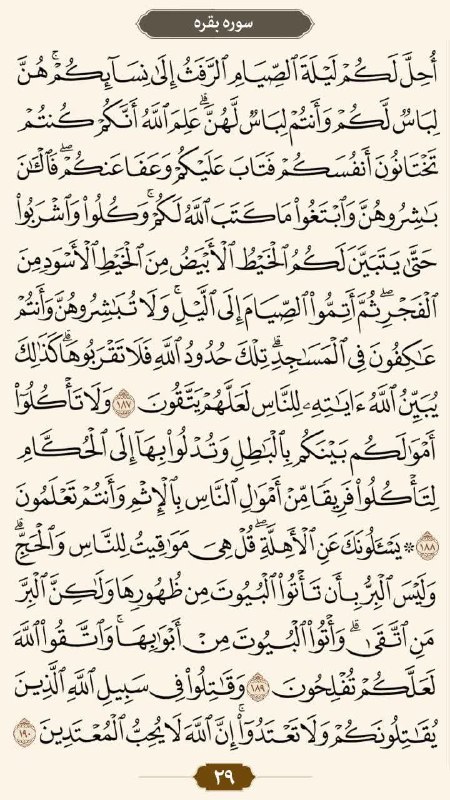 سوره بقره
أُحِلَّ لَكُمْ لَيْلَةَ ٱلصِّيَامِ ٱلرَّفَثُ إِلَىٰ نِسَآئِكُمْ ۚ هُنَّ
لِبَاسٌ لَّكُمْ وَأَنتُمْ لِبَاسٌ لَّهُنَّ ۗ عَلِمَ ٱللَّهُ أَنَّكُمْ كُنتُمْ
تَخْتَانُونَ أَنفُسَكُمْ فَتَابَ عَلَيْكُمْ وَعَفَا عَنكُمْ ۖ فَٱلْـَٰٔنَ
بَـٰشِرُوهُنَّ وَٱبْتَغُوا۟ مَا كَتَبَ ٱللَّهُ لَكُمْ ۚ وَكُلُوا۟ وَٱشْرَبُوا۟
حَتَّىٰ يَتَبَيَّنَ لَكُمُ ٱلْخَيْطُ ٱلْأَبْيَضُ مِنَ ٱلْخَيْطِ ٱلْأَسْوَدِ مِنَ
ٱلْفَجْرِ ۖ ثُمَّ أَتِمُّوا۟ ٱلصِّيَامَ إِلَى ٱلَّيْلِ ۚ وَلَا تُبَـٰشِرُوهُنَّ وَأَنتُمْ
عَـٰكِفُونَ فِى ٱلْمَسَـٰجِدِ ۗ تِلْكَ حُدُودُ ٱللَّهِ فَلَا تَقْرَبُوهَا ۗ كَذَٰلِكَ
يُبَيِّنُ ٱللَّهُ ءَايَـٰتِهِۦ لِلنَّاسِ لَعَلَّهُمْ يَتَّقُونَ ١٨٧ وَلَا تَأْكُلُوٓا۟
أَمْوَٰلَكُم بَيْنَكُم بِٱلْبَـٰطِلِ وَتُدْلُوا۟ بِهَآ إِلَى ٱلْحُكَّامِ
لِتَأْكُلُوا۟ فَرِيقًا مِّنْ أَمْوَٰلِ ٱلنَّاسِ بِٱلْإِثْمِ وَأَنتُمْ تَعْلَمُونَ
١٨٨ ۞ يَسْـَٔلُونَكَ عَنِ ٱلْأَهِلَّةِ ۖ قُلْ هِىَ مَوَٰقِيتُ لِلنَّاسِ وَٱلْحَجِّ ۗ
وَلَيْسَ ٱلْبِرُّ بِأَن تَأْتُوا۟ ٱلْبُيُوتَ مِن ظُهُورِهَا وَلَـٰكِنَّ ٱلْبِرَّ
مَنِ ٱتَّقَىٰ ۗ وَأْتُوا۟ ٱلْبُيُوتَ مِنْ أَبْوَٰبِهَا ۚ وَٱتَّقُوا۟ ٱللَّهَ
لَعَلَّكُمْ تُفْلِحُونَ ١٨٩ وَقَـٰتِلُوا۟ فِى سَبِيلِ ٱللَّهِ ٱلَّذِينَ
يُقَـٰتِلُونَكُمْ وَلَا تَعْتَدُوٓا۟ ۚ إِنَّ ٱللَّهَ لَا يُحِبُّ ٱلْمُعْتَدِينَ ١٩٠
٢٩